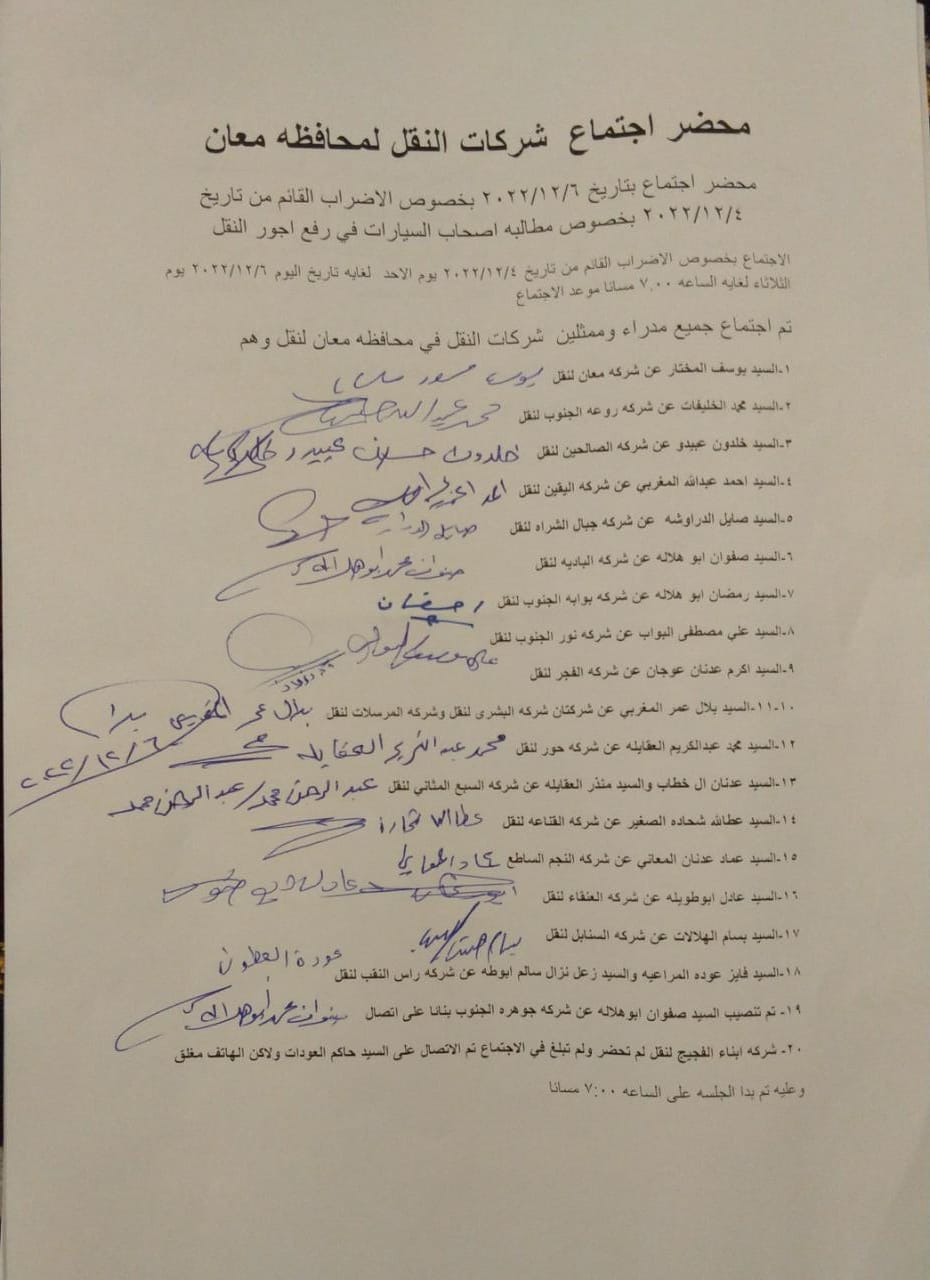 محضر اجتماع شركات النقل لمحافظه معان
محضر اجتماع بتاريخ ٢٠٢٢/١٢/٦ بخصوص الاضراب القائم من تاريخ
٢٠٢٢/١٢/٤ بخصوص مطالبه اصحاب السيارات في رفع اجور النقل
الاجتماع بخصوص الاضراب القائم من تاريخ ٢٠٢٢/١٢/٤ يوم الاحد لغايه تاريخ اليوم ٢٠٢٢/١٢/٦ يوم
الثلاثاء لغايه الساعه ٧,٠٠ مسائا موعد الاجتماع
تم اجتماع جميع مدراء وممثلين شركات النقل في محافظه معان لنقل وهم
١-السيد يوسف المختار عن شركه معان لنقل
٢-السيد محمد الخليفات عن شركه روعه الجنوب لنقل
٣-السيد خلدون عبيدو عن شركه الصالحين لنقل خلدون حسان عبيدو
٤-السيد احمد عبدالله المغربي عن شركه اليقين لنقل
٥-السيد صايل الدراوشه عن شركه جبال الشراه لنقل صايل
٦-السيد صفوان ابو هلاله عن شركه الباديه لنقل صفوان محمد ابوهلاله
٧-السيد رمضان ابو هلاله عن شركه بوابه الجنوب لنقل رمضان
٨-السيد علي مصطفى البواب عن شركه نور الجنوب لنقل علي مصطفى البواب
٩-السيد اكرم عدنان عوجان عن شركه الفجر لنقل
١٠-١١-السيد بلال عمر المغربي عن شركتان شركه البشرى لنقل وشركه المرسلات لنقل بلال عمر المغربي
٢٠٢٢/١٢/٦
١٢-السيد محمد عبدالكريم العقايله عن شركه حور لنقل محمد عبد الكريم العقايله
١٣-السيد عدنان ال خطاب والسيد منذر العقايله عن شركه السبع المثاني لنقل عبد الرحمن حمد/عبد الرحمن حمد
١٤-السيد عطالله شحاده الصغير عن شركه القناعه لنقل عطالله شحاده
١٥-السيد عماد عدنان المعاني عن شركه النجم الساطع عماد المعاني
١٦-السيد عادل ابوطويله عن شركه العنقاء لنقل
١٧-السيد بسام الهلالات عن شركه السنابل لنقل بسام
١٨-السيد فايز عوده المراعيه والسيد زعل نزال سالم ابوطه عن شركه راس النقب لنقل عودة
١٩- تم تنصيب السيد صفوان ابوهلاله عن شركه جوهره الجنوب بنائا على اتصال صفوان محمد ابوهلاله
٢٠- شركه ابناء الفجيج لنقل لم تحضر ولم تبلغ في الاجتماع تم الاتصال على السيد حاكم العودات ولاكن الهاتف مغلق
وعليه تم بدا الجلسه على الساعه ٧:٠٠ مسائا